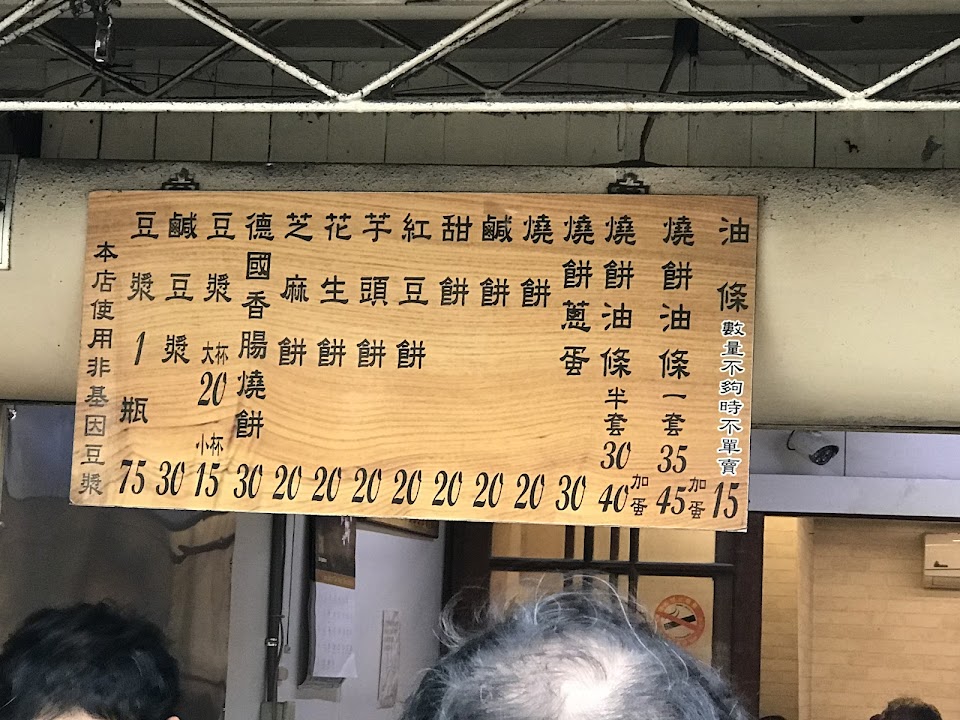 油條 數量不夠時不單賣 15
燒餅油條一套 35 加蛋 45
燒餅油條半套 30 加蛋 40
燒餅蔥蛋 30
燒餅 20
鹹餅 20
甜餅 20
紅豆餅 20
芋頭餅 20
花生餅 20
芝麻餅 20
德國香腸燒餅 30
豆漿 大杯 20 小杯 15
鹹豆漿 30
豆漿1瓶 75
本店使用非基因豆漿